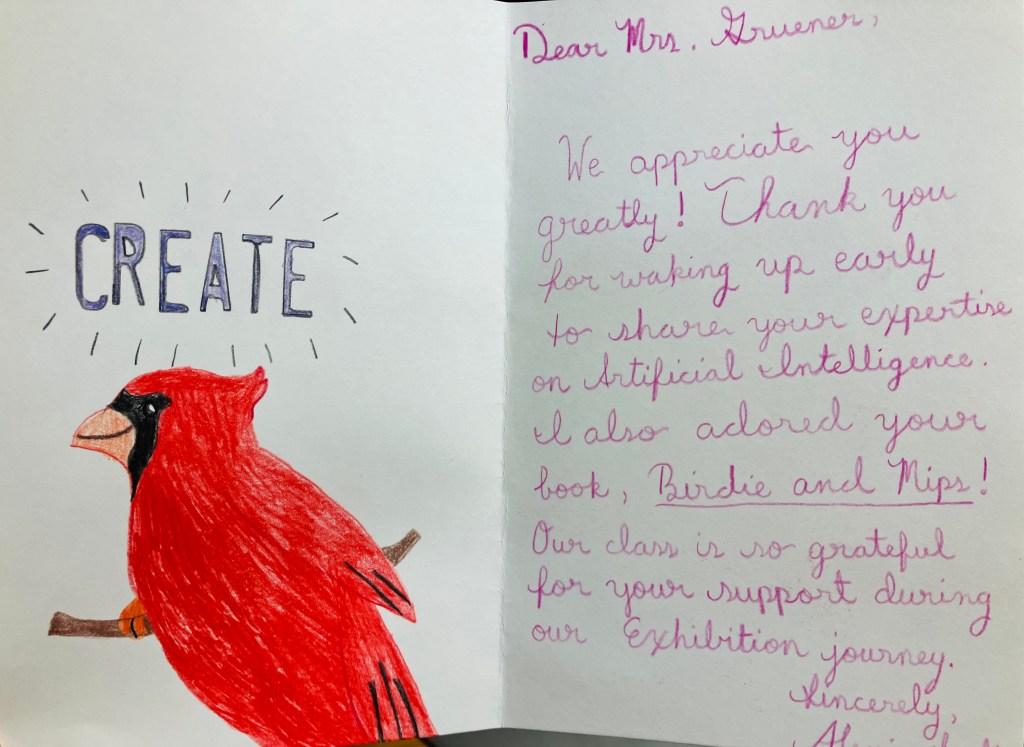 CREATE
Dear Mrs. Gruener,
We appreciate you
greatly! Thank you
for waking up early
to share your expertise
on Artificial Intelligence.
I also adored your
book, Birdie and Mips!
Our class is so grateful
for your support during
our Exhibition journey.
Sincerely,